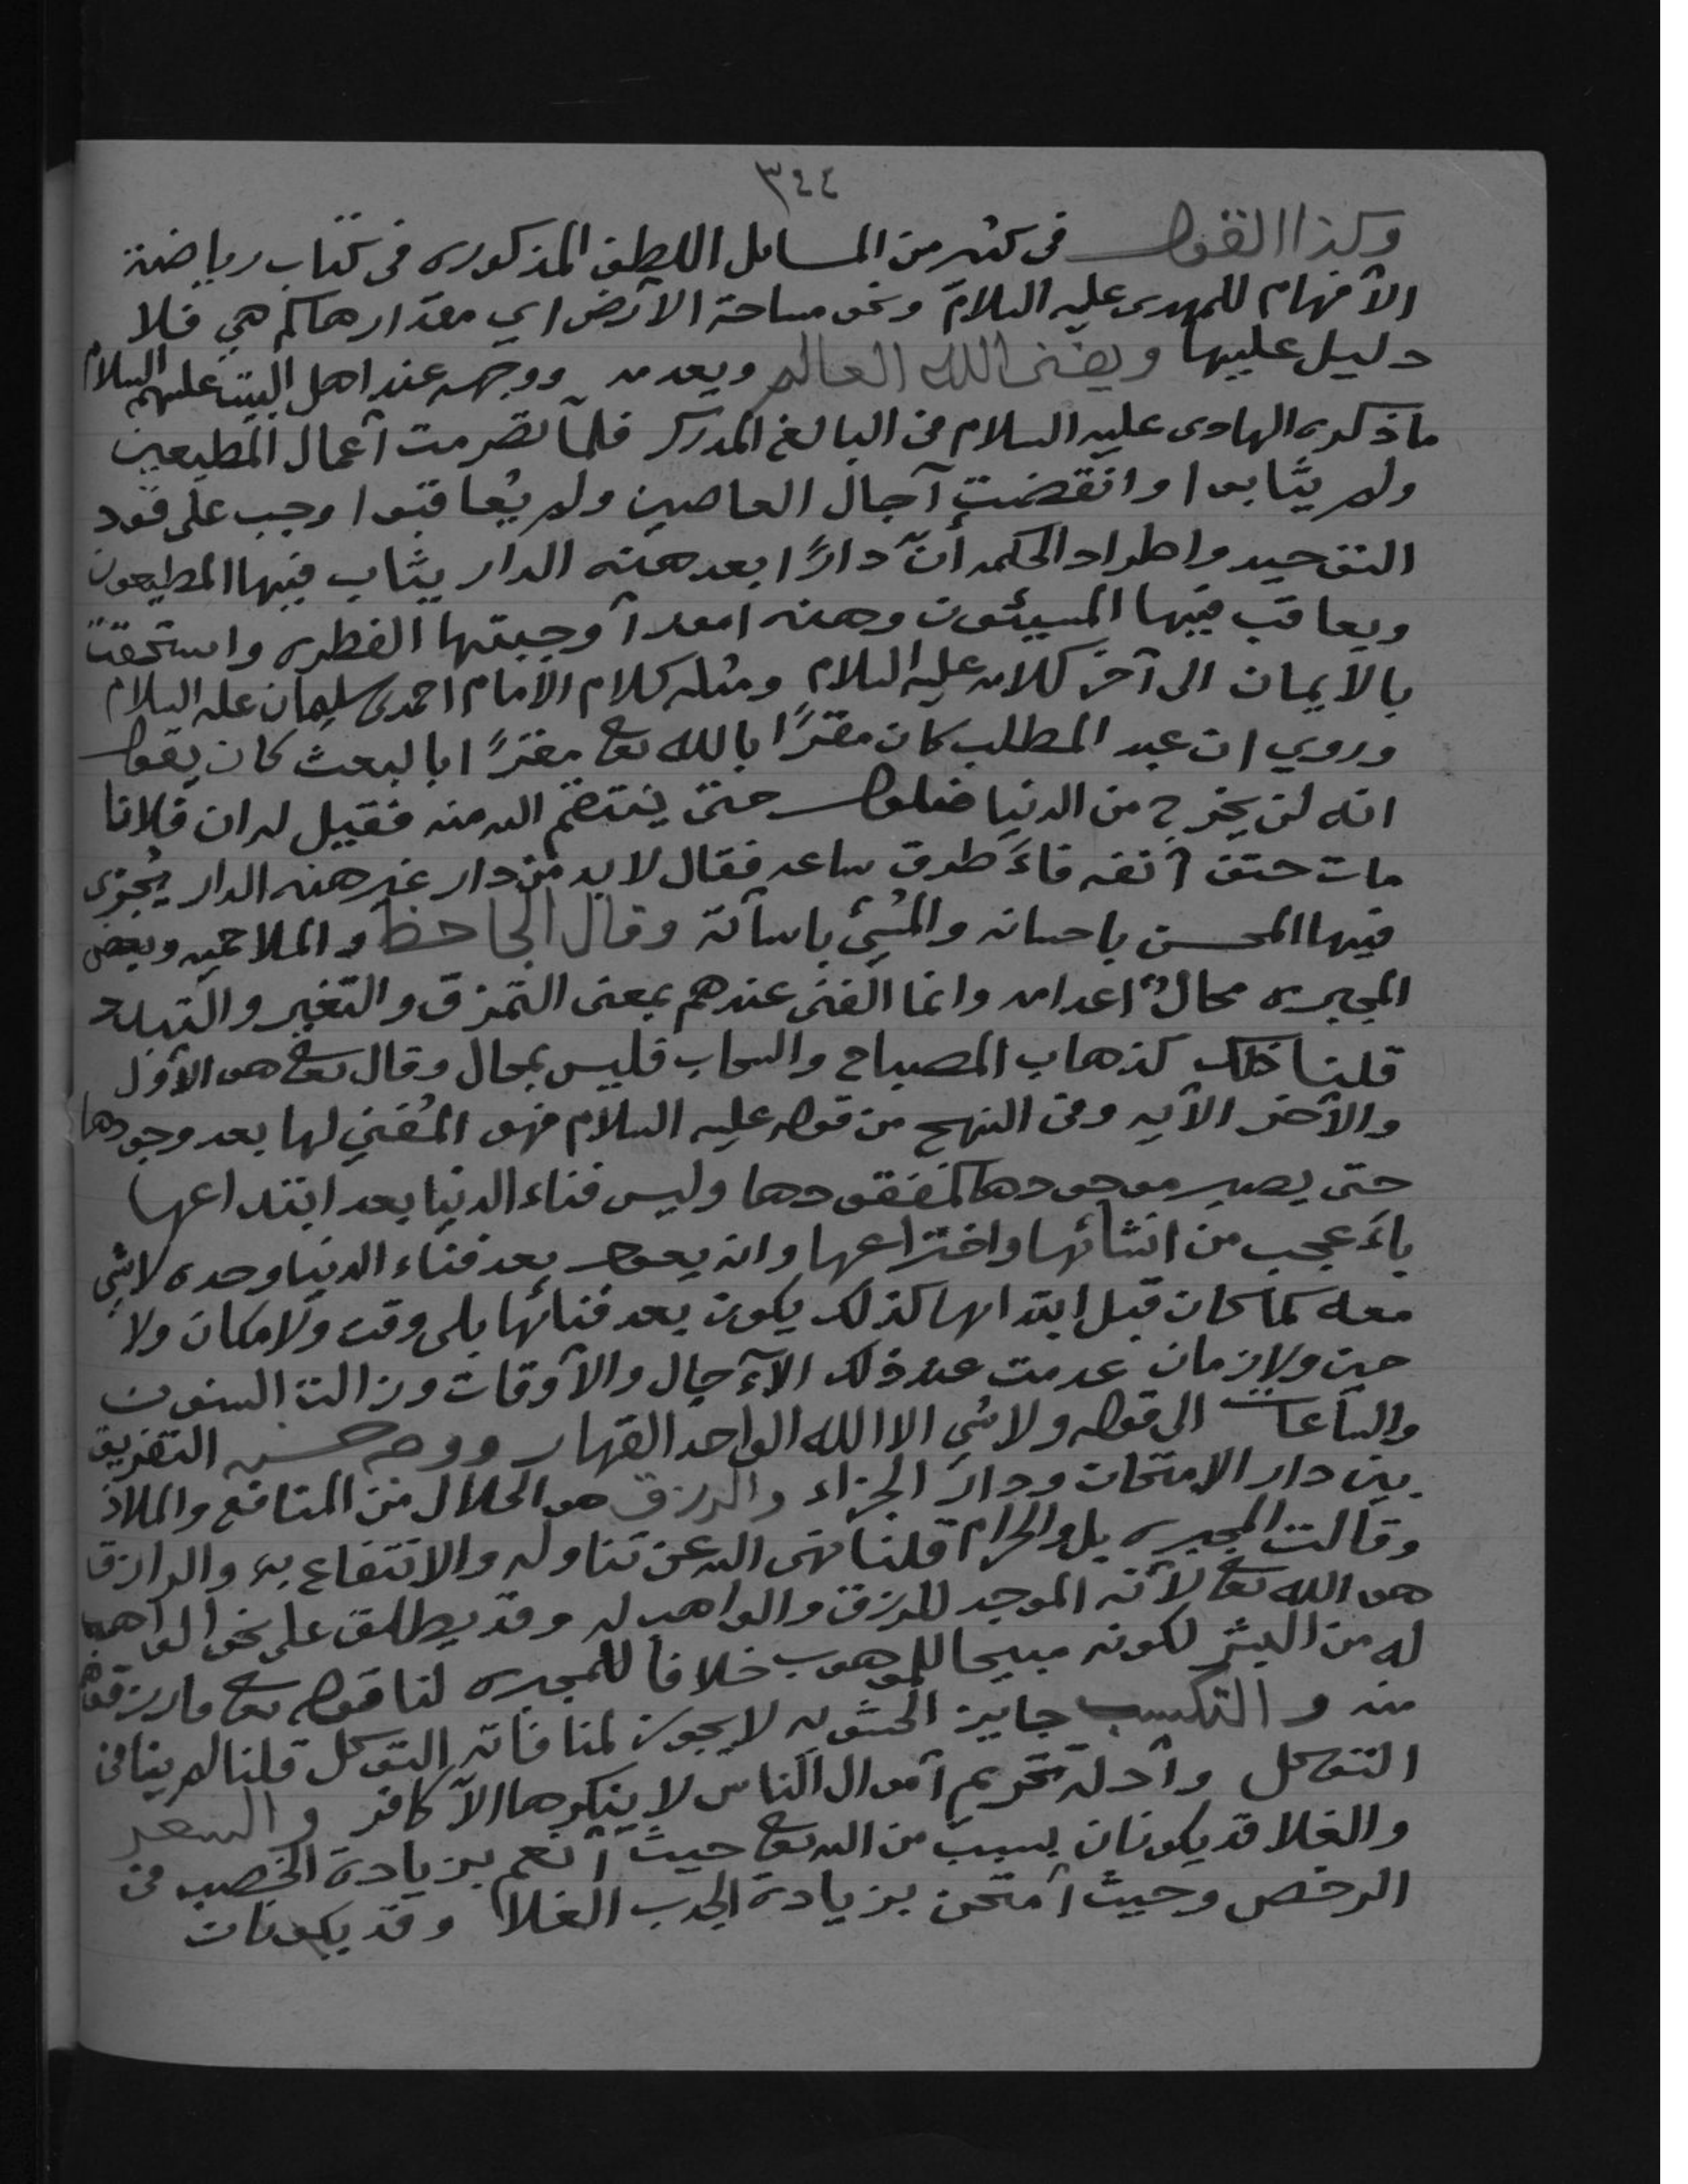 ٣٤٤
وكذا القول في كثير من المسائل اللطيف المذكوره في كتاب رياضة
الأفهام للمهدى عليه السلام ونحو مساحة الأرض اي مقدارها كم هي فلا
دليل عليها ويفنى الله العالم ويعدمه ووجهه عند اهل البيت عليهم السلام
ماذكره الهادى عليه السلام في البالغ المدرك فلمآ تصرمت آعمال المطيعين
ولم يثابوا وانقضت آجال العاصين ولم يُعاقبوا وجب على قود
التوحيد واطراد الحكمه أنّ دارًا بعد هذه الدار يثاب فيها المطيعون
ويعاقب فيها المسيئون وهذه امور آوجبتها الفطره واستحقت
بالأيمان الى آخر كلامه عليه السلام ومثله كلام الأمام احمد بن سليمان عليه السلام
وروي ان عبد المطلب كان مقرًا بالله تعالى مقرًا بالبعث كان يقول
انه لن يخرج من الدنيا ظلوم حتى ينتقم الله منه فقيل له ان فلانا
مات حتف آنفه فاءَطرق ساعه فقال لابد من دار غير هذه الدار يُجزى
فيها المحسن باحسانه والمُسِئ باسآئة وقال الجاحظ والملاحميه وبعض
المجبره محالٌ اعدامه وانما الفنى عندهم بمعنى التمزق والتغير والتبدد
قلنا ذلك كذهاب المصباح والسحاب فليس بمحال وقال تعالى هو الأول
والآخر الآيه وفي النهج من قوله عليه السلام فهو المُفني لها بعد وجودها
حتى يصير موجودها كمفقودها وليس فناء الدنيا بعد ابتداعها
باءَعجب من انشائها واختراعها وانه يعود بعد فناء الدنيا وحده لاشي
معه كما كان قبل ابتدائها كذلك يكون بعد فنائها بلى وقت ولامكان ولا
حين ولازمان عدمت عند ذلك الآءجال والآوقات وزالت السنون
والساعات الى قوله ولا شي الا الله الواحد القهار ووجه حسنه التفريق
بين دار الامتحان ودار الجزاء والرزق هو الحلال من المنافع والملاذ
وقالت المجبره بل والحرام قلنا نهى الله عن تناوله والانتفاع به والرازق
هو الله تعالى لآنه الموجد للرزق والواهب له وقد يطلق على نحو الواهب
له من البشر لكونه مبيحا للموهوب خلافا للمجبره لنا قوله تعالى فارزقوهم
منه والتكسب جايز الحشويه لايجوز لمنافاته التوكل قلنا لم ينافى
التوكل وآدلة تحريم آموال الناس لا ينكرها الآ كافر والسعر
والغلا قد يكونان بسبب من الله تعالى حيث آنعم بزيادة الخصب في
الرخص وحيث آمتحن بزيادة الجدب الغلا وقد يكونان